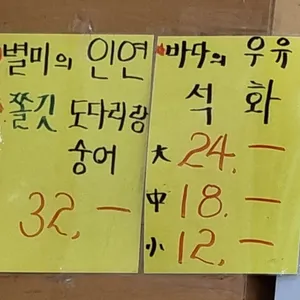 별미의 인연
쫄깃 도다리랑
숭어
32,—
바다의 우유
석 화
大 24,—
中 18,—
小 12,—